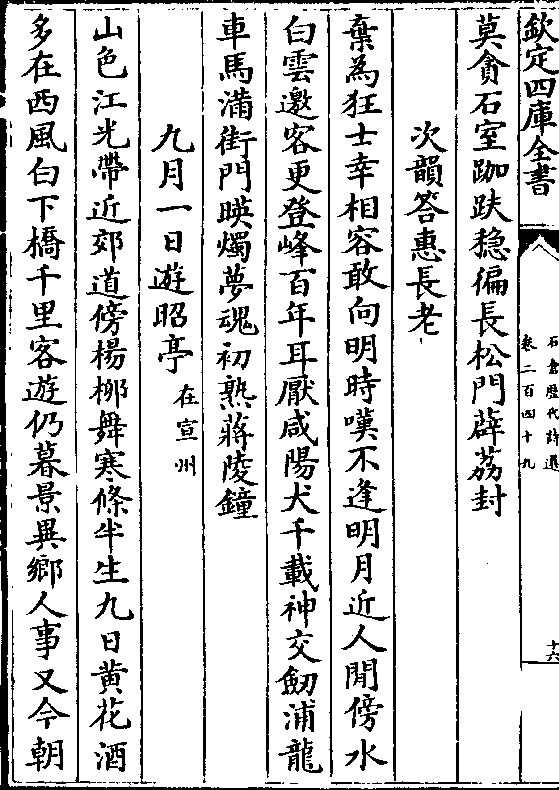 欽定四庫全書
石倉歷代詩選
卷二百四十九
十六
莫貪石室跏趺穩徧長松門薜荔封
次韻答惠長老
棄為狂士幸相容敢向明時嘆不逢明月近人閒傍水
白雲邀客更登峰百年耳厭咸陽犬千載神交劒浦龍
車馬滿街門暎燭夢魂初熟蔣陵鐘
九月一日遊昭亭在宣州
山色江光帶近郊道傍楊柳舞寒條半生九日黄花酒
多在西風白下橋千里客遊仍暮景異鄉人事又今朝